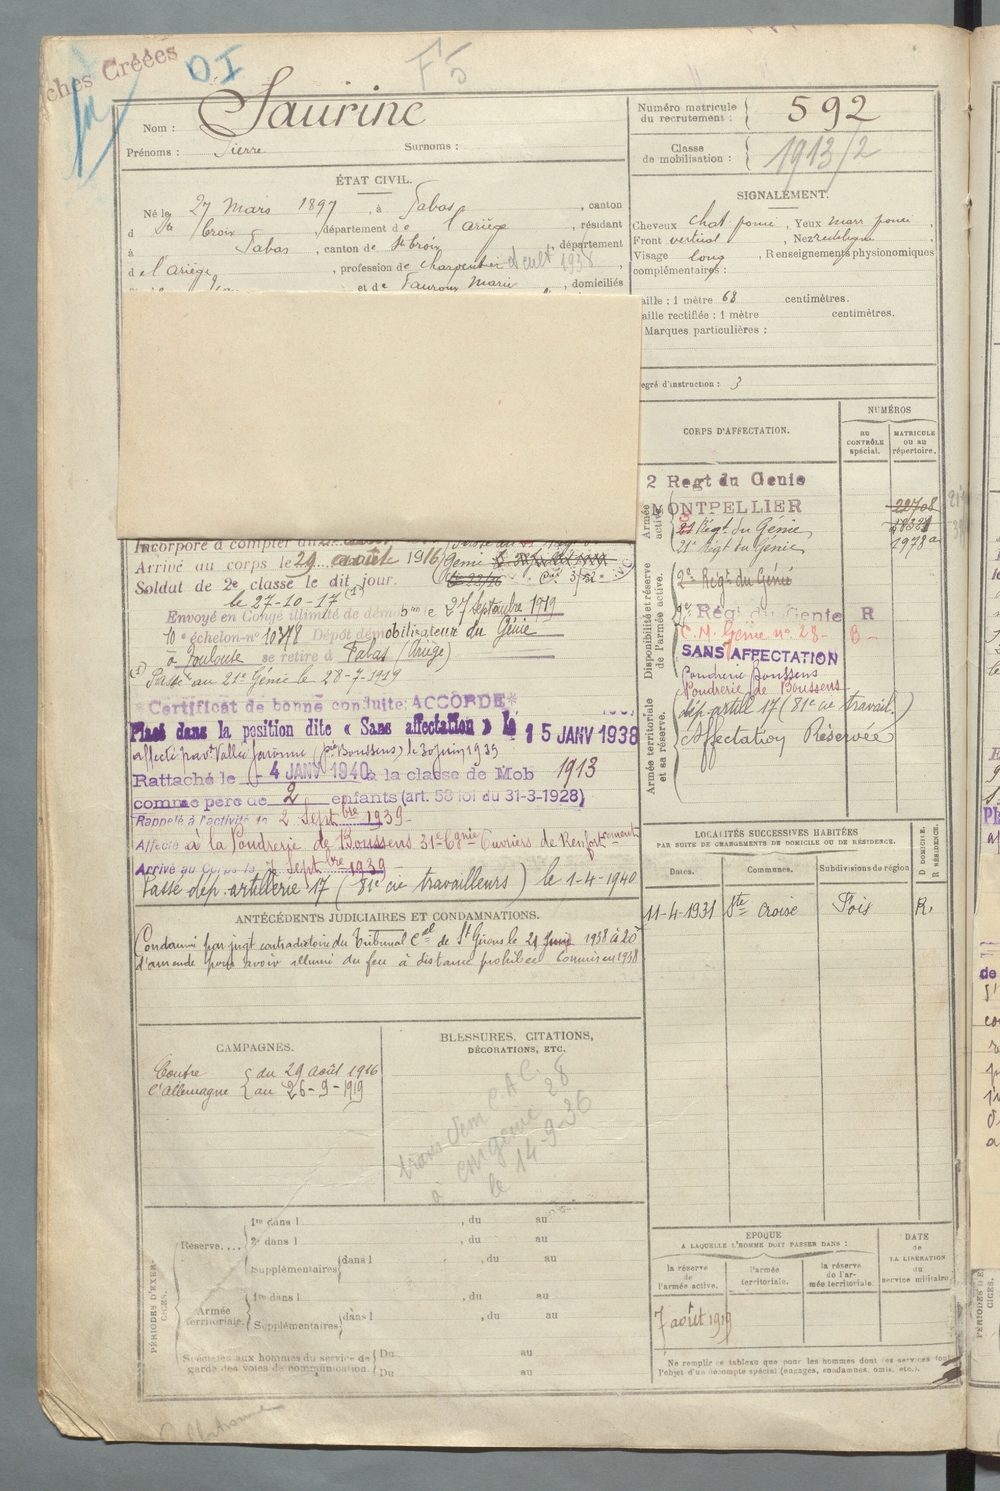 ches Créées
DI
F5
Nom : Saurine
Prénoms : Pierre Surnoms :
Numéro matricule du recrutement : 592
Classe de mobilisation : 1913/2
ÉTAT CIVIL.
Né le 27 Mars 1897, à Fabas, canton
d Ste Croix, département de l'Ariège, résidant
à Fabas, canton de Ste Croix, département
de l'Ariège, profession de charpentier cult 1938
et de Faurous Marie, domiciliés
SIGNALEMENT.
Cheveux chat. foncé, Yeux marr. foncé
Front vertical, Nez rectiligne,
Visage long, Renseignements physionomiques
complémentaires :
aille : 1 mètre 68 centimètres.
aille rectifiée : 1 mètre centimètres.
Marques particulières :
egré d'instruction : 3
CORPS D'AFFECTATION.
NUMÉROS
AU CONTRÔLE spécial.
MATRICULE OU AU répertoire.
Armée active.
2 Regt du Genie
MONTPELLIER
22708
21 Régt du Génie
21e Régt du Génie 1978a
Disponibilité et réserve de l'armée active.
2e Régt du Génie
2e Régt du Genie R
C.M. Génie n° 28 - B -
SANS AFFECTATION
Poudrerie Boussens
Poudrerie de Boussens
Armée territoriale et sa réserve.
dép. artill 17 (81e cie travail.)
Affectation Réservée
Incorporé à compter du
Arrivé au corps le 29 août 1916
Soldat de 2e classe le dit jour.
le 27-10-17 (1)
Envoyé en Congé illimité de dém le 27 Septembre 1919
10e échelon n° 10378 Dépôt démobilisateur du Génie
à Toulouse se retire à Fabas (Ariège)
(1) Passé au 21e Génie le 28-7-1919
*Certificat de bonne conduite: ACCORDÉ*
Placé dans la position dite « Sans affectation » le 15 JANV 1938
le 30 juin 1939
Rattaché le 4 JANV 1940 à la classe de Mob 1913
comme père de 2 enfants (art. 58 loi du 31-3-1928)
Rappelé à l'activité le 2 Septbre 1939
Affecté à la Poudrerie de Boussens 31e Cgnie Ouvriers de Renforcement
Arrivé au Corps le 7 Septbre 1939
Passé dép. artillerie 17 (81e cie travailleurs) le 1-4-1940
ANTÉCÉDENTS JUDICIAIRES ET CONDAMNATIONS.
Condamné par jugt contradictoire du Tribunal Cel de St Girons le 21 Juin 1938 à 20f
d'amende pour avoir allumé du feu à distance prohibée Commis en 1938
LOCALITÉS SUCCESSIVES HABITÉES
PAR SUITE DE CHANGEMENTS DE DOMICILE OU DE RÉSIDENCE.
Dates. Communes. Subdivisions de région D DOMICILE. R RÉSIDENCE.
11-4-1931 Ste Croix Foix R.
CAMPAGNES.
Contre l'Allemagne { du 29 août 1916
au 26-9-1919
BLESSURES, CITATIONS,
DÉCORATIONS, ETC.
C.A.C. 28
à cmgénie
le 14-9-36
PÉRIODES D'EXERCICES.
Réserve....
1re dans l , du au
2e dans l , du au
Supplémentaires dans l , du au
, du au
Armée territoriale.
1re dans l , du au
Supplémentaires dans l , du au
, du au
Spéciales aux hommes du service de garde des voies de communication.
Du au
Du au
ÉPOQUE
A LAQUELLE L'HOMME DOIT PASSER DANS :
la réserve de l'armée active.
l'armée territoriale.
la réserve de l'armée territoriale.
DATE de LA LIBÉRATION du service militaire.
7 août 1919
Ne remplir ce tableau que pour les hommes dont les services font
l'objet d'un décompte spécial (engagés, condamnés, omis, etc.).